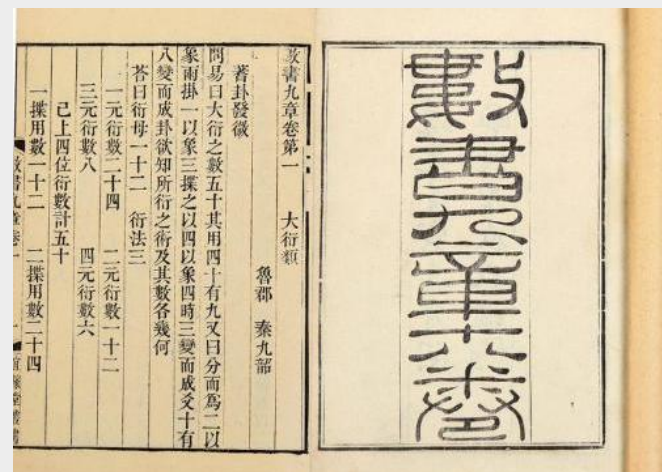 數書九章十八卷
數書九章卷第一　大衍類
魯郡　秦九韶
蓍卦發微
問易曰大衍之數五十其用四十有九又曰分而爲二以
象兩掛一以象三揲之以四以象四時三變而成爻十有
八變而成卦欲知所衍之術及其數各幾何
荅曰衍母一十二　衍法三
一元衍數二十四　二元衍數一十二
三元衍數八　四元衍數六
已上四位衍數計五十
一揲用數一十二　二揲用數二十四
數書九章卷一
宜稼堂叢書